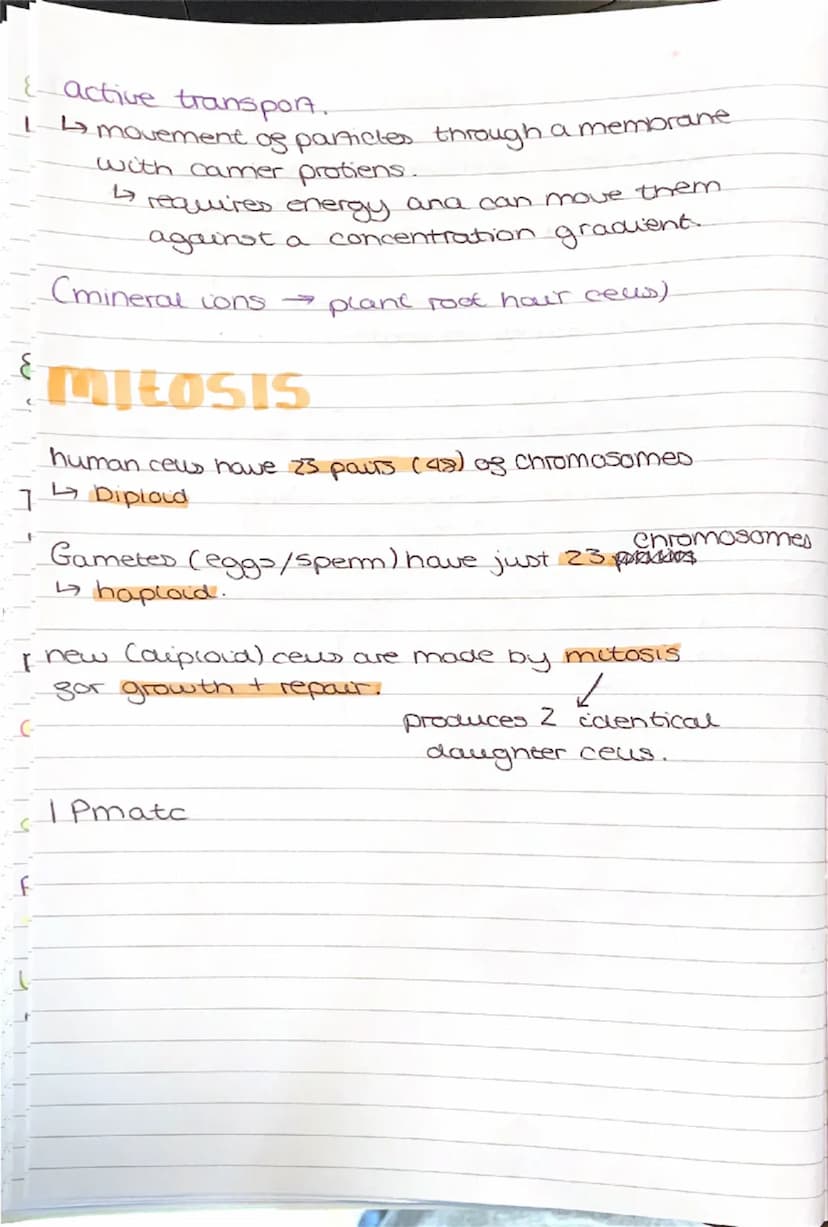 active transport.
↳ movement of particles through a membrane
with carrier protiens.
↳ requires energy and can move them
against a concentration gradient.
(mineral ions → plant root hair cells)
MITOSIS
human cells have 23 pairs (46) of chromosomes
↳ Diploid
chromosomes
Gametes (eggs/sperm) have just 23
↳ haploid.
new (diploid) cells are made by mitosis
for growth + repair.
produces 2 identical
daughter cells.
IPmatc